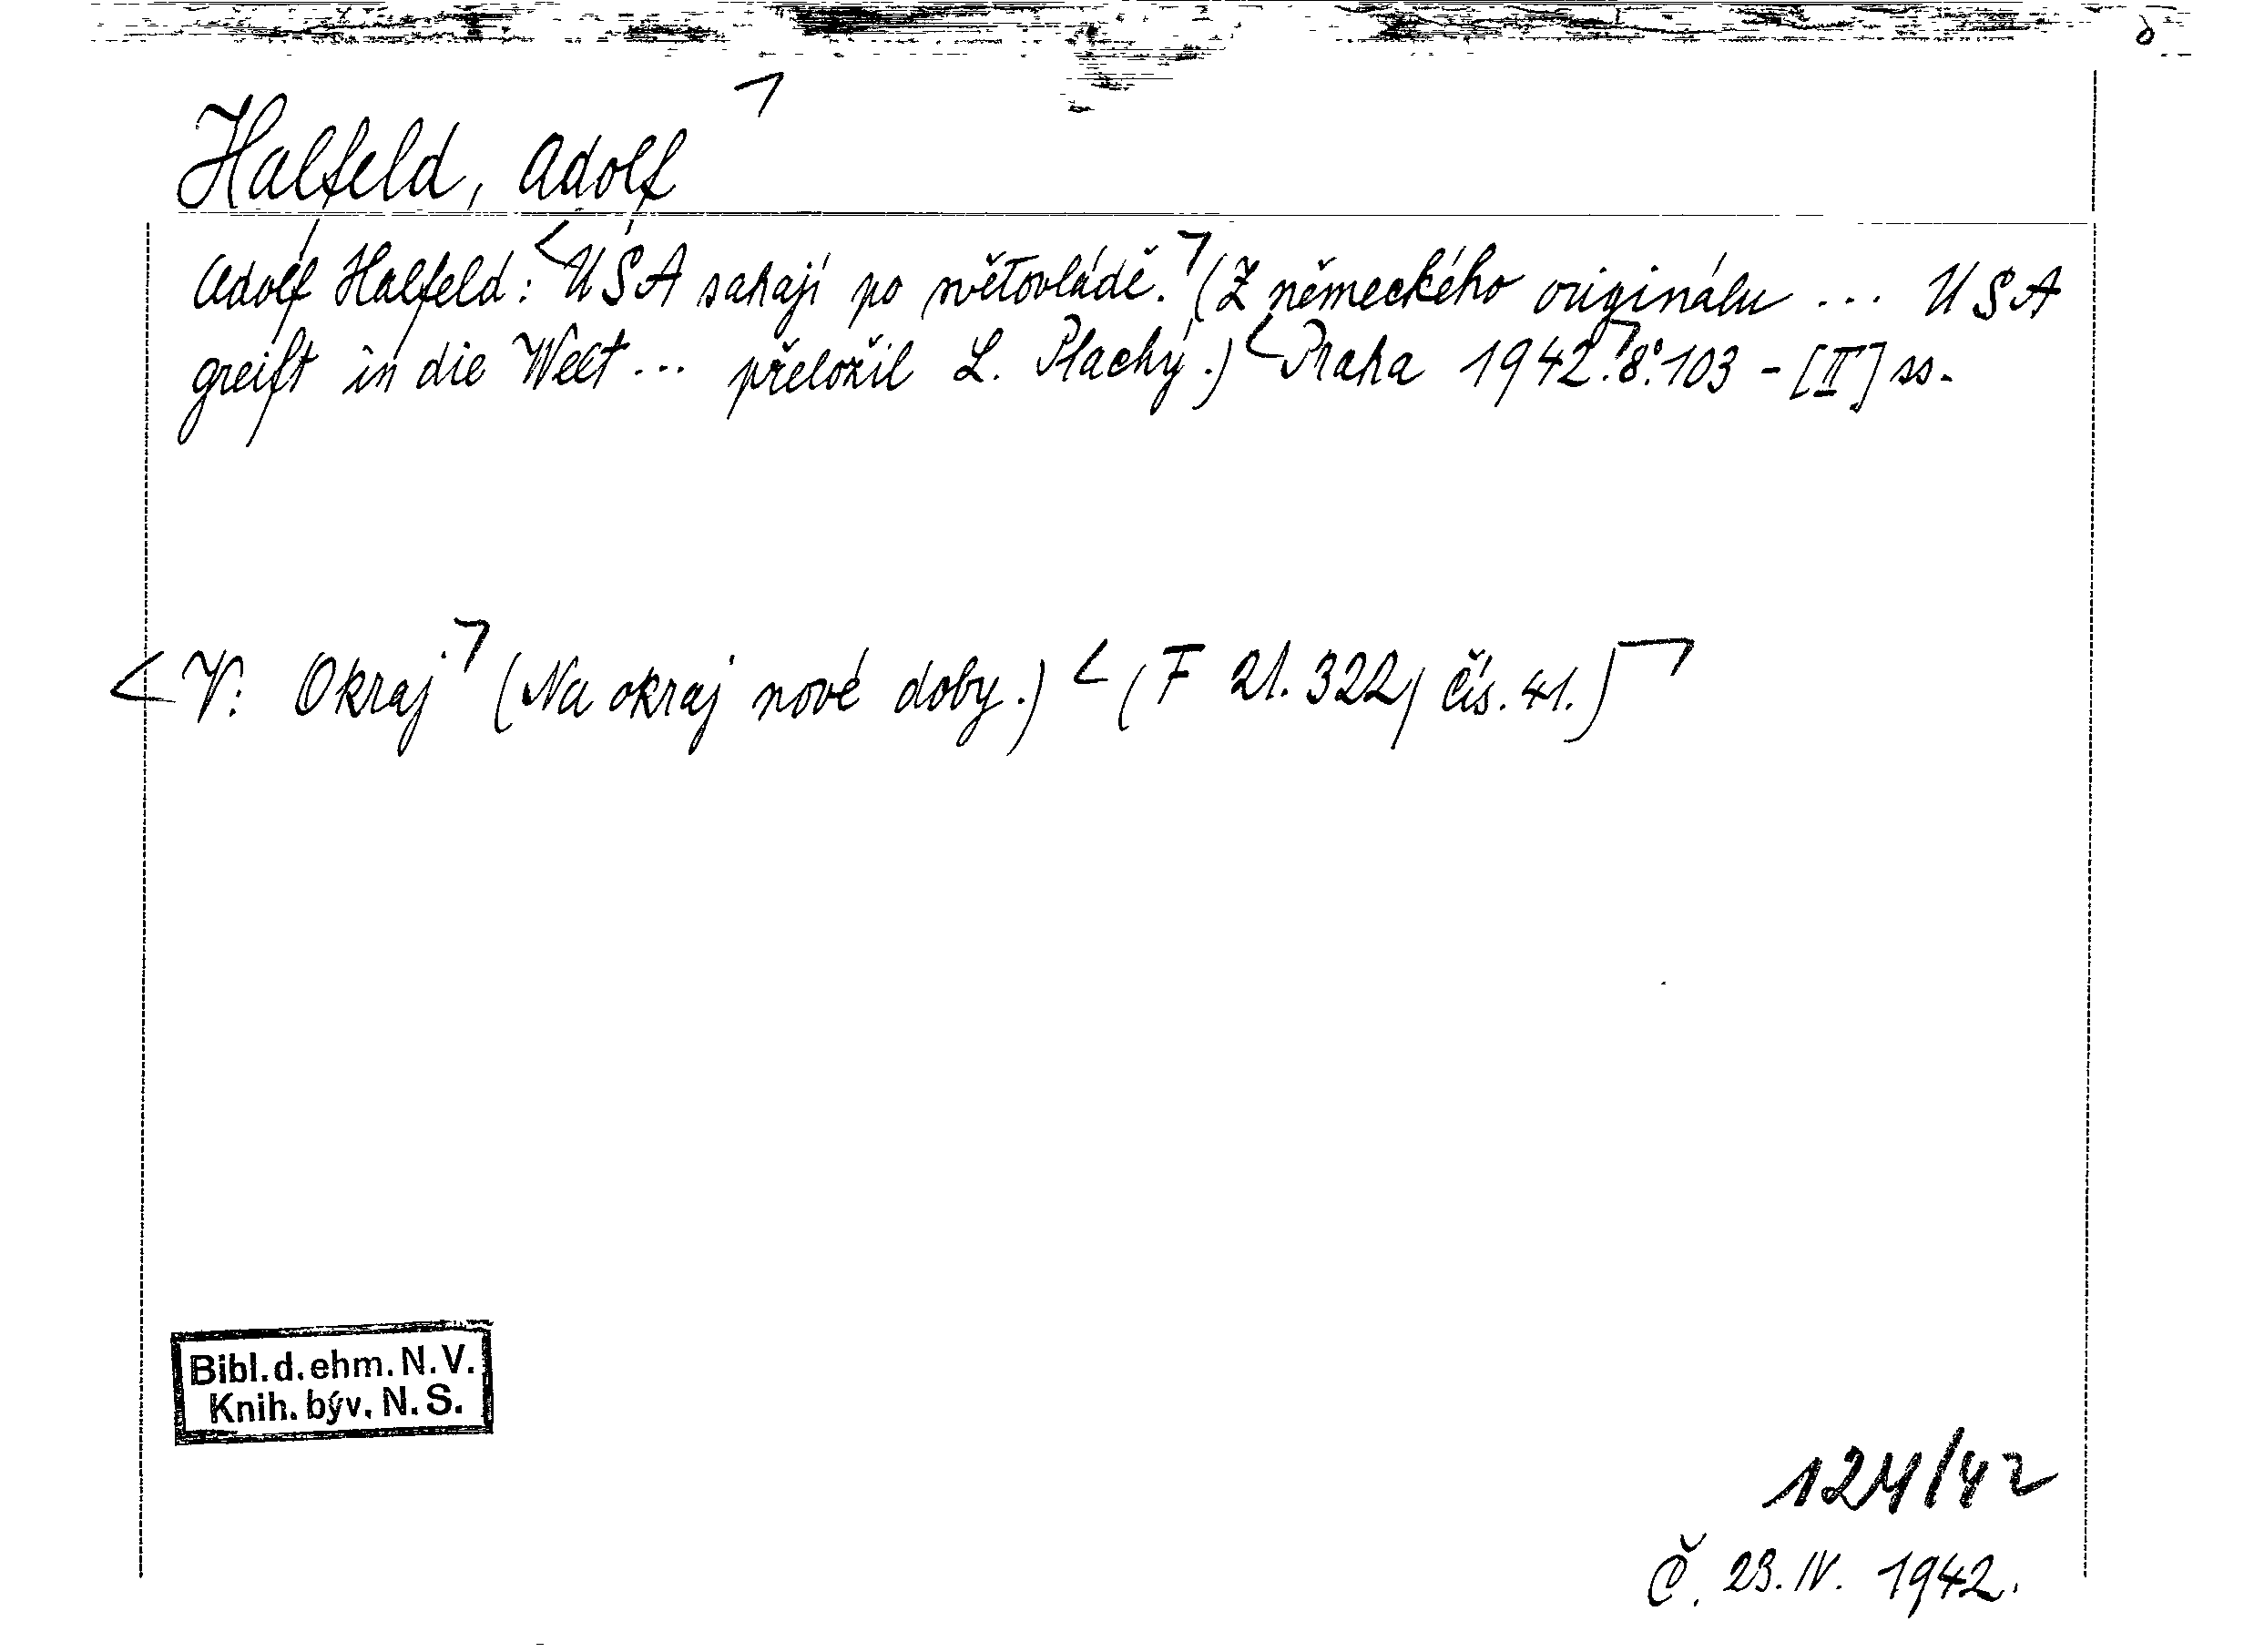 Halfeld, Adolf
Adolf Halfeld: USA sahají po světovládě. (Z německého originálu ... USA
greift in die Welt ... přeložil L. Plachý.) Praha 1942. 8°. 103 - [II] ss.
V: Okraj (Na okraj nové doby.) (F 21.322/ čís. 41.)
Bibl. d. ehm. N. V.
Knih. býv. N. S.
124/42
Č. 23. IV. 1942.